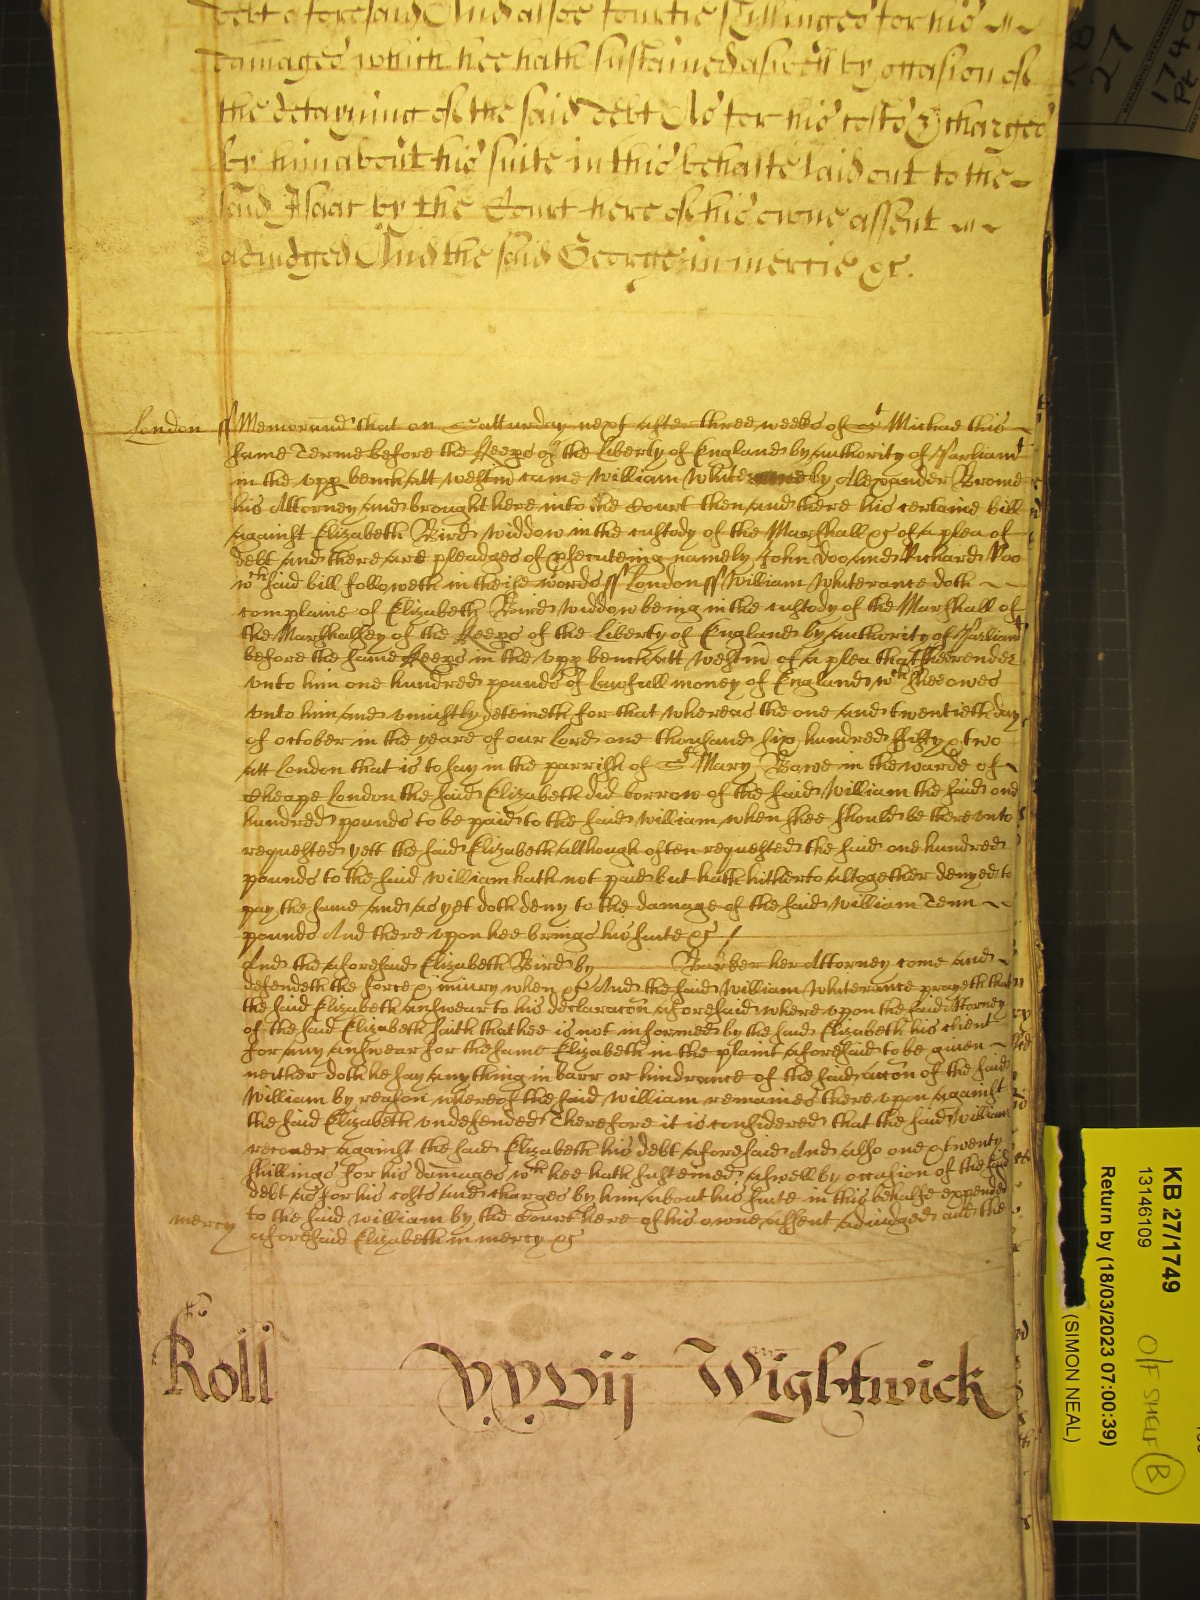 debt aforesaid And alsoe fourtie shillinges for his
damages which hee hath sustained aswell by occasion of
the detayning of the said debt As for his costs & charges
by him about his suite in this behalfe laid out to the
said Isaac by the Court here of his owne assent
adiudged And the said George in mercie &c.
London ss Memorand that on Satturday next after three weeks of St Michael this
same Terme before the Keeps of the Liberty of England by authority of Parliamt
in the upp bench att Westm came William Whiterance by Alexander Brome
his Attorney and brought here into the Court then and there his certaine bill
against Elizabeth Bird widdow in the custody of the Marshall &c of a plea of
debt and there are pleadges of psecuteing namely John Doo and Richard Roo
wch said bill followeth in theise words ss London ss William Whiterance doth
complaine of Elizabeth Bird widdow being in the custody of the Marshall of
the Marshallsey of the Keeps of the Liberty of England by authority of Parliamt
before the same Keeps in the upp bench att Westm of a plea that shee render
unto him one hundred pounds of lawfull money of England wch shee owes
unto him and uniustly deteineth for that whereas the one and twentieth day
of october in the yeare of our Lord one thousand six hundred fifty & two
att London that is to say in the parrish of St Mary Bowe in the warde of
Cheape London the said Elizabeth did borrow of the said William the said one
hundred pounds to be paid to the said William when shee should be thereunto
requested yett the said Elizabeth although often requested the said one hundred
pounds to the said William hath not paid but hath hitherto altogether denyed to
pay the same and as yet doth deny to the damage of the said William Tenn
pounds And there upon hee brings his suite &c
And the aforesaid Elizabeth Bird by Barker her Attorney come and
defendeth the force & iniury when &c And the said William Whiterance prayeth that
the said Elizabeth answear to his declaracon aforesaid where upon the said Attorney
of the said Elizabeth saith that hee is not informed by the said Elizabeth his client
for any answear for the same Elizabeth in the plaint aforesaid to be given
neither doth he say any thing in barr or hindrance of the said accon of the said
William by reason whereof the said William remaines there upon against
the said Elizabeth undefended Therefore it is considered that the said William
recover against the said Elizabeth his debt aforesaid And also one & twenty
shillings for his damages wch hee hath susteined aswell by occasion of the said
debt as for his costs and charges by him about his suite in this behalfe expended
mercy to the said William by the Court here of his owne assent adiudged and the
aforesaid Elizabeth in mercy &c
Roll xxvij Wightwick
KB 27/1749
13146109
Return by (18/03/2023 07:00:39)
(SIMON NEAL)
O/F SHELF B
KB
27
1749
Pt